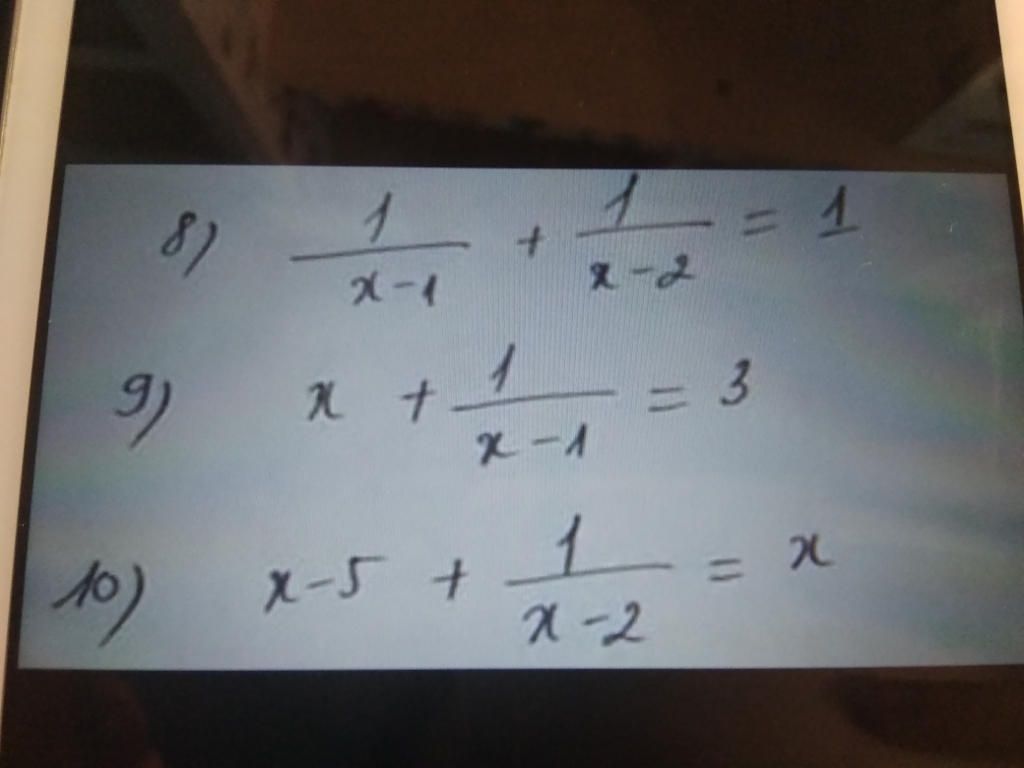 8) \frac{1}{x-1} + \frac{1}{x-2} = 1
9) x + \frac{1}{x-1} = 3
10) x-5 + \frac{1}{x-2} = x